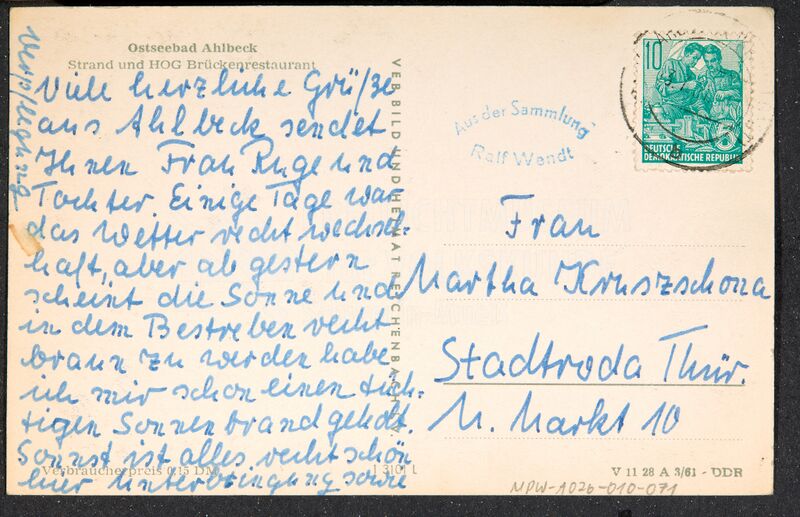 Ostseebad Ahlbeck
Strand und HOG Brückenrestaurant
Viele herzliche Grüße
aus Ahlbeck sendet
Ihnen Frau Ruge und
Tochter. Einige Tage war
das Wetter recht wechsel-
haft, aber ab gestern
scheint die Sonne und
in dem Bestreben recht
braun zu werden habe
ich mir schon einen tüch-
tigen Sonnenbrand geholt.
Sonst ist alles recht schön
hier Unterbringung sowie
Verpflegung
Verbraucherpreis 0,15 DM
VEB BILD UND HEIMAT REICHENBACH I. V.
1 3101 L
Aus der Sammlung
Ralf Wendt
10
DEUTSCHE
DEMOKRATISCHE REPUBLIK
Frau
Martha Kruszschona
Stadtroda Thür.
N. Markt 10
V 11 28 A 3/61 - DDR
MPW-A026-010-071